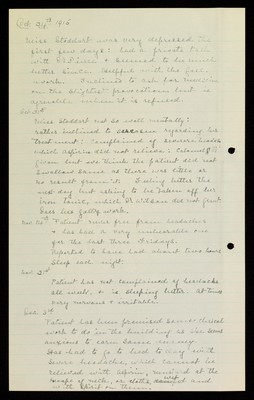 Oct 26th 1916
Miss Stoddart was very depressed the
first few days: had a private talk
with Dr and seemed to be much
better since. Helpful with the
work. Inclined to ask for medicine
on the slightest provocation but is
agreeable when it is refused.
Miss Stoddart not so well mentally:
rather inclined to regarding her
treatment: Complained of severe headache
which aspirin did not relieve: Calomel
given but we think the patient did not
swallow same as there was little or
no result from it. Feeling better the
next day but asking to be taken off her
iron tonic, which Dr did not find
does her good work.
Nov. 10th Patient more free from headaches
& has had a very comfortable one
for the last three Fridays.
Reported to have had about two hours
sleep each night.
Patient has not complained of headache
all week, & is sleeping better. At times
very nervous & irritable.
Patient has been promised some
work to do in the building as she seems
anxious to earn some money.
Has had to go to bed to-day with
severe headache, which cannot be
relieved with aspirin, mustard at the
nape of neck, or cloths wet and
with spirit on them.